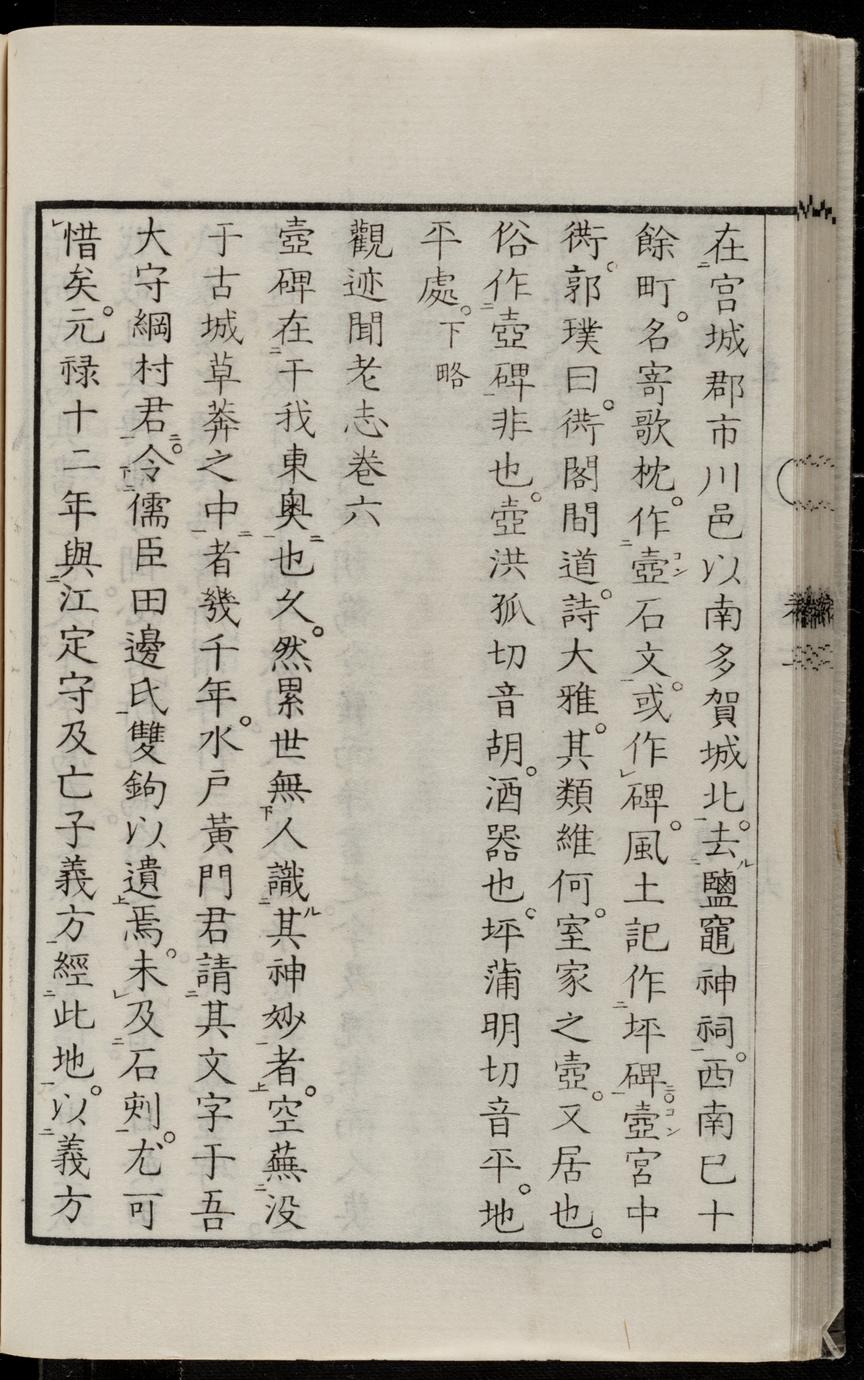 在宮城郡市川邑以南多賀城北。去鹽竈神祠。西南巳十
餘町。名寄歌枕。作壼石文。或作碑。風土記作坪碑。壼宮中
衖。郭璞曰。衖閤間道。詩大雅。其類維何。室家之壼。又居也。
俗作壺碑非也。壺洪孤切音胡。酒器也。坪蒲明切音平。地
平處。下略
觀迹聞老志卷六
壺碑在于我東奥也久。然累世無人識其神妙者。空蕪没
于古城草莽之中者幾千年。水戸黃門君請其文字于吾
大守綱村君。令儒臣田邊氏雙鉤以遺焉。未及石刻。尤可
惜矣。元禄十二年與江定守及亡子義方經此地。以義方